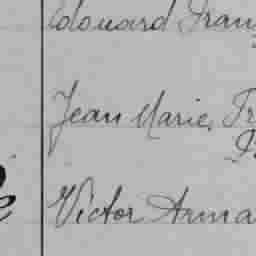 Edouard Fran
Jean Marie, Fr
Victor Arma